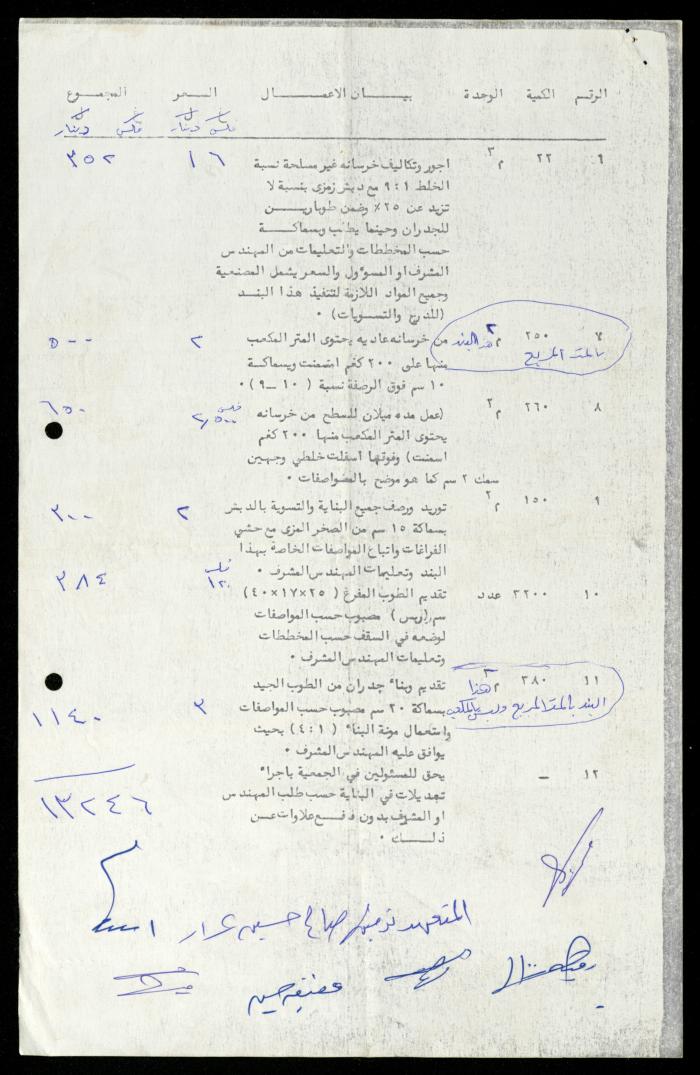 الرقم الكمية الوحدة بيـــان الاعمـــال السعر المجموع
فلس دينار فلس دينار
٦ ٢٢ م٣ اجور وتكاليف خرسانه غير مسلحة نسبة ١٦ ٣٥٢
الخلط ١:٩ مع دبش رمزى بنسبة لا
تزيد عن ٢٥٪ وضمن طوباريـــن
للجدران وحينما يطلب وبسماكـــة
حسب المخططات والتعليمات من المهندس
المشرف او المسؤول والسعر يشمل المصنعية
وجميع المواد اللازمة لتنفيذ هذا البنـــد
(للدرج والتسويات) ٠
٧ ٢٥٠ م٢ هذا البند من خرسانه عاديه يحتوى المتر المكعب ٢ ٥٠٠
بالمتر المربع منها على ٢٠٠ كغم اسمنت وبسماكة
١٠ سم فوق الرصفة نسبة (١٠ــ٩) ٠
٨ ٢٦٠ م٢ (عمل مده ميلان للسطح من خرسانه فلس ٢,٥٠٠ ٦٥٠
يحتوى المتر المكعب منها ٢٠٠ كغم
اسمنت) وفوقها اسفلت خلطي وجهين
سمك ٢ سم كما هو موضح بالمواصفات ٠
٩ ١٥٠ م٢ توريد ورصف جميع البناية والتسوية بالدبش ٢ ٣٠٠
بسماكة ١٥ سم من الصخر المزى مع حشي
الفراغات واتباع المواصفات الخاصة بهذا
البند وتعليمات المهندس المشرف ٠
١٠ ٣٢٠٠ عدد تقديم الطوب المفرغ (٢٥×١٧×٤٠) فلس ١٢٠ ٣٨٤
سم (ربس) مصبوب حسب المواصفات
لوضعه في السقف حسب المخططات
وتعليمات المهندس المشرف ٠
١١ ٣٨٠ م٣ هذا تقديم وبناء جدران من الطوب الجيد
البند بالمتر المربع وليس بالمكعب بسماكة ٢٠ سم مصبوب حسب المواصفات ٣ ١١٤٠
واستعمال مونة البناء (١:٤) بحيث
يوافق عليه المهندس المشرف ٠
١٢ ــ يحق للمسئولين في الجمعية باجراء
تعديلات في البناية حسب طلب المهندس
او المشرف بدون دفـــع علاوات عـــن
ذلـــك ٠
١٣٢٤٦
المتعهد صالح حسين عرار